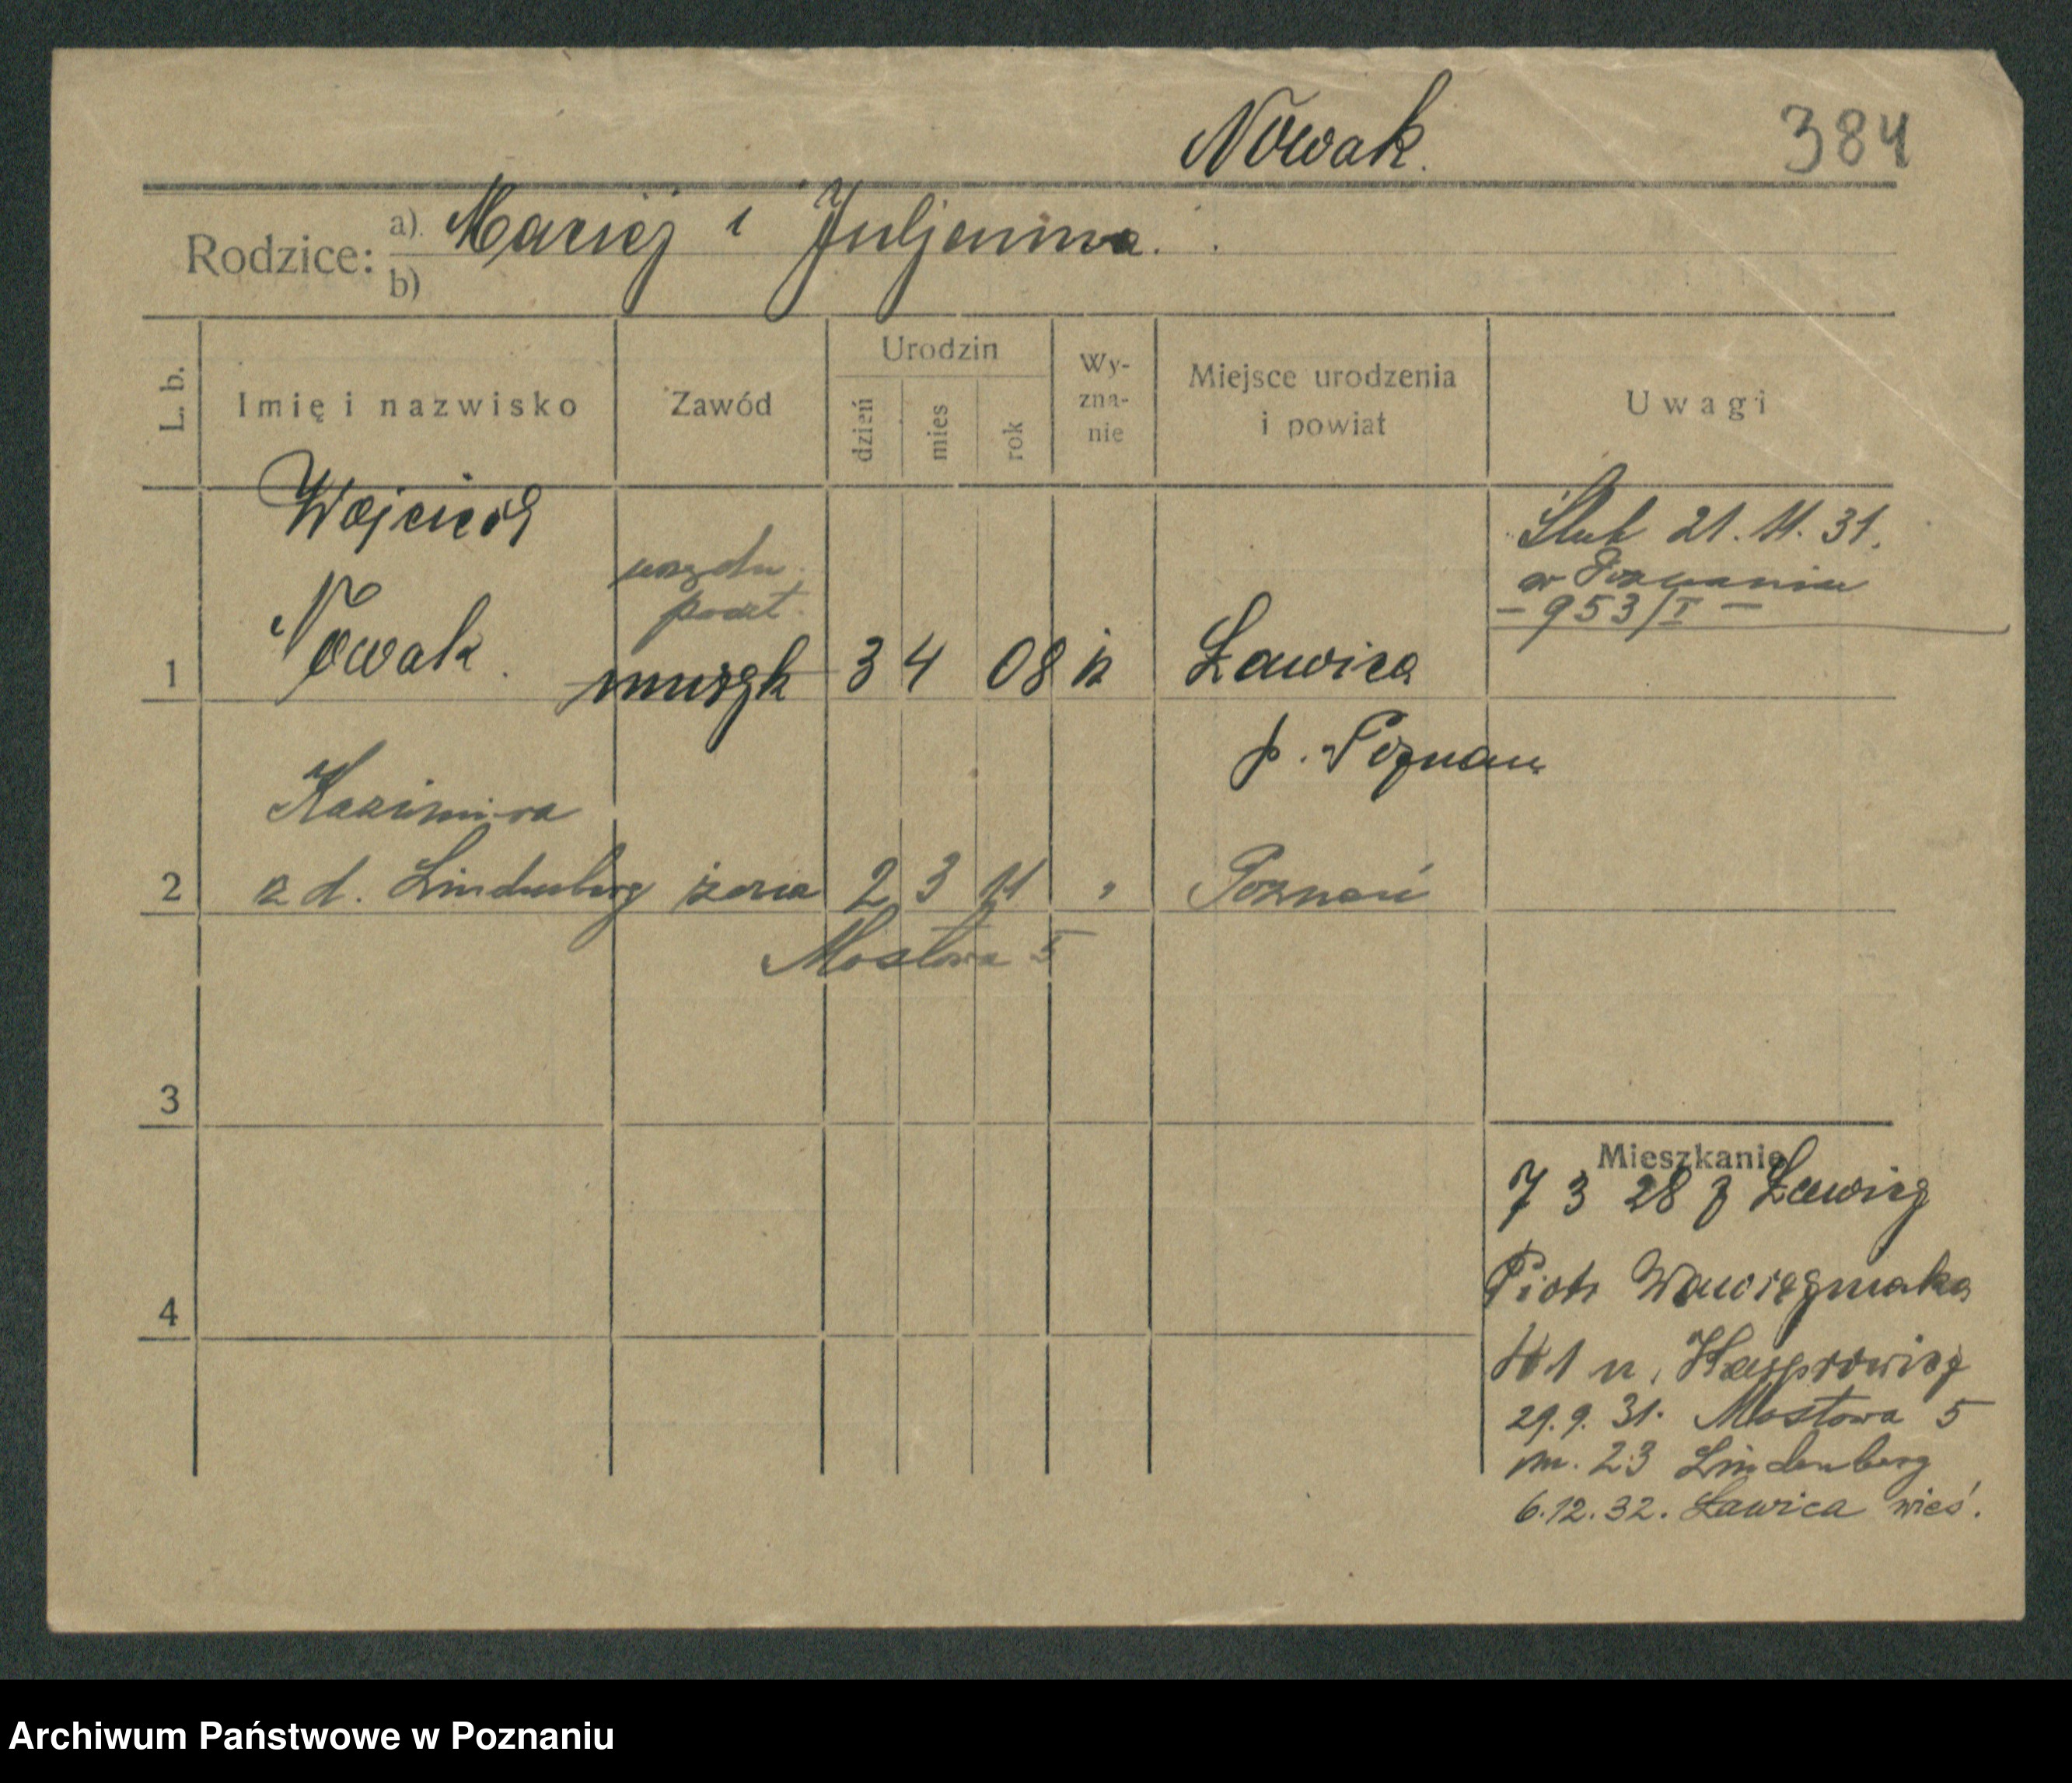 Nowak.
384
Rodzice:
a). Maciej i Juljanna.
b)
L. b.
Imię i nazwisko
Zawód
Urodzin
dzień
mies
rok
Wy-
zna-
nie
Miejsce urodzenia
i powiat
Uwagi
Wojciech
Nowak.
urzędn.
poczt.
muzyk
1
3 4 08 k
Ławica
p. Poznań
Ślub 21. 11. 31.
w Poznaniu
- 953/I -
Kazimira
2
z d. Lindenberg żona 2 3 11 " Poznań
Mostowa 5
3
4
Mieszkanie
7 3 28 z Ławicy
Piotr Wawrzyniaka
41 u. Kasprowicz
29. 9. 31. Mostowa 5
m. 23 Lindenberg
6.12.32. Ławica wieś.
Archiwum Państwowe w Poznaniu